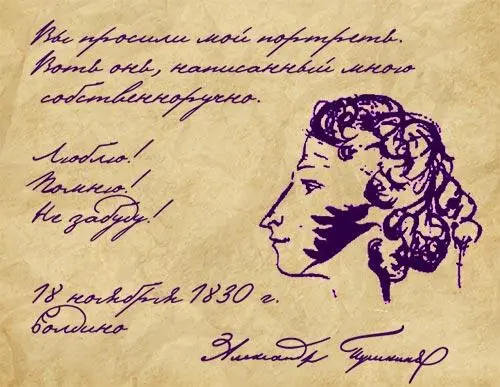 Вы просили мой портретъ.
Вотъ онъ, написанный мною
собственноручно.
Люблю!
Помню!
Не забуду!
18 ноября 1830 г.
Болдино
Александр Пушкинъ